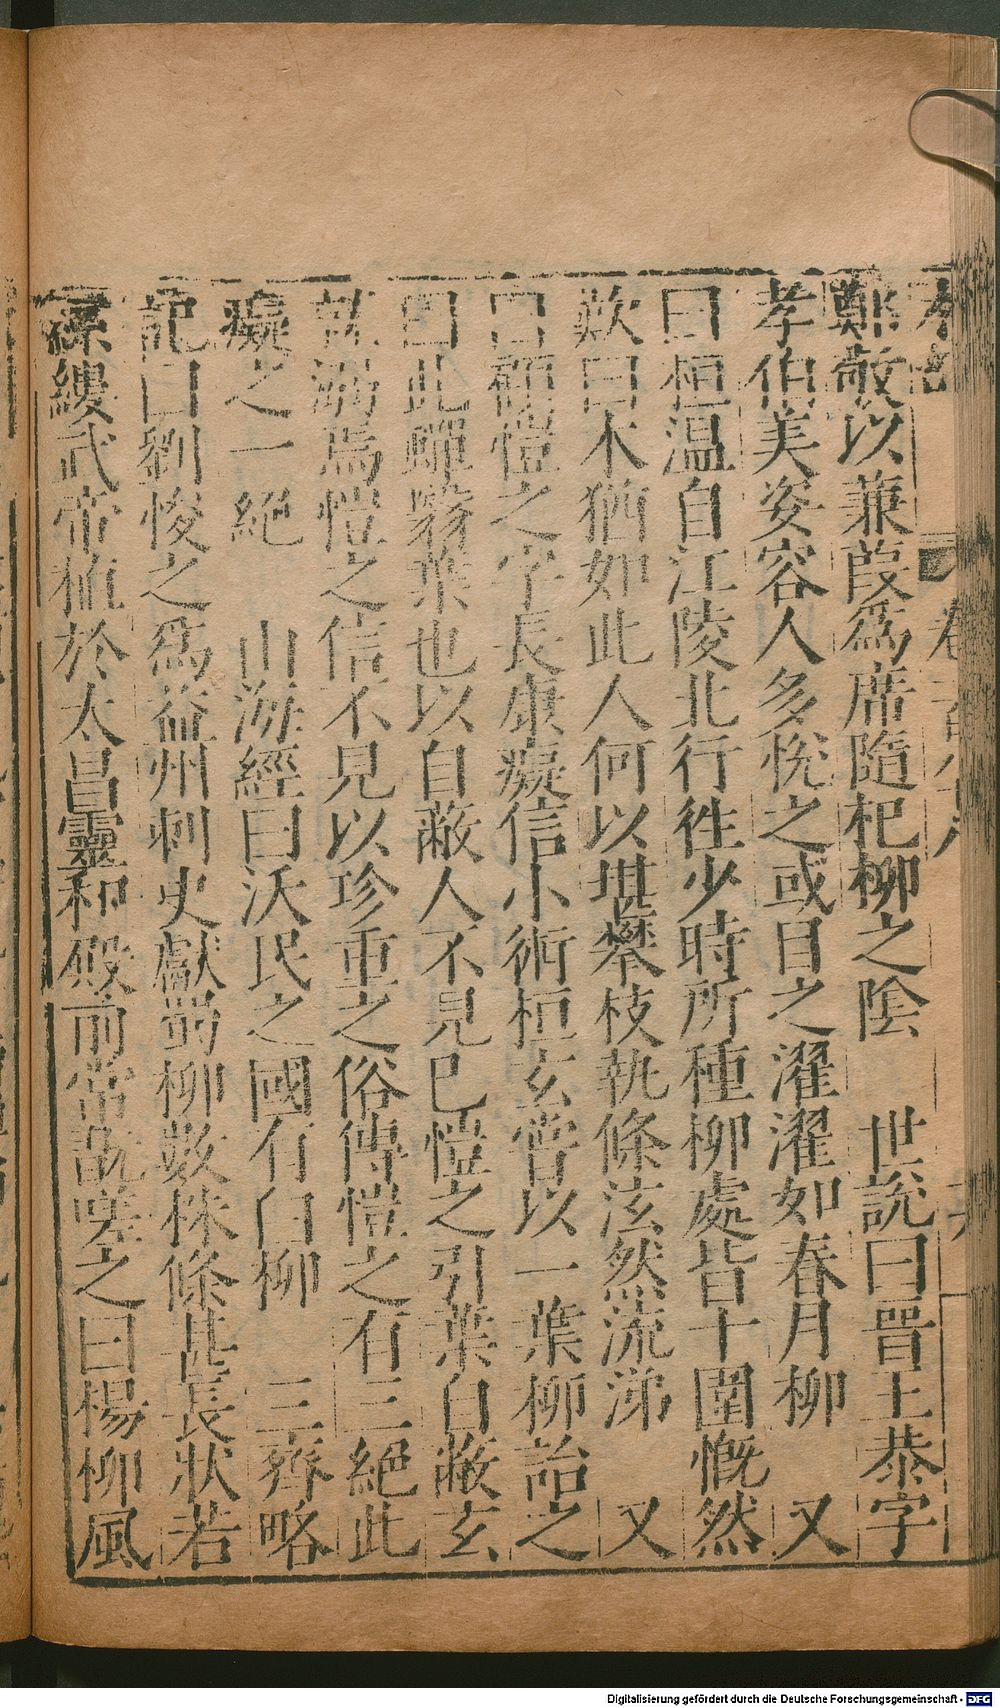 鄭敬以蒹葭爲席隨杞柳之陰　世說曰晉王恭字
孝伯美姿容人多悅之或目之濯濯如春月柳　又
曰桓温自江陵北行徃少時所種柳處皆十圍慨然
歎曰木猶如此人何以堪攀枝執條泫然流涕　又
曰顧愷之字長康癡信小術桓玄嘗以一葉柳詒之
曰此蟬翳葉也以自蔽人不見已愷之引葉自蔽玄
就溺焉愷之信不見以珍重之俗傳愷之有三絕此
癡之一絕　山海經曰沃民之國有白柳　三齊略
記曰劉悛之爲益州刺史獻蜀柳數株條甚長狀若
絲縷武帝植於太昌靈和殿前常翫嗟之曰楊柳風
Digitalisierung gefördert durch die Deutsche Forschungsgemeinschaft - DFG